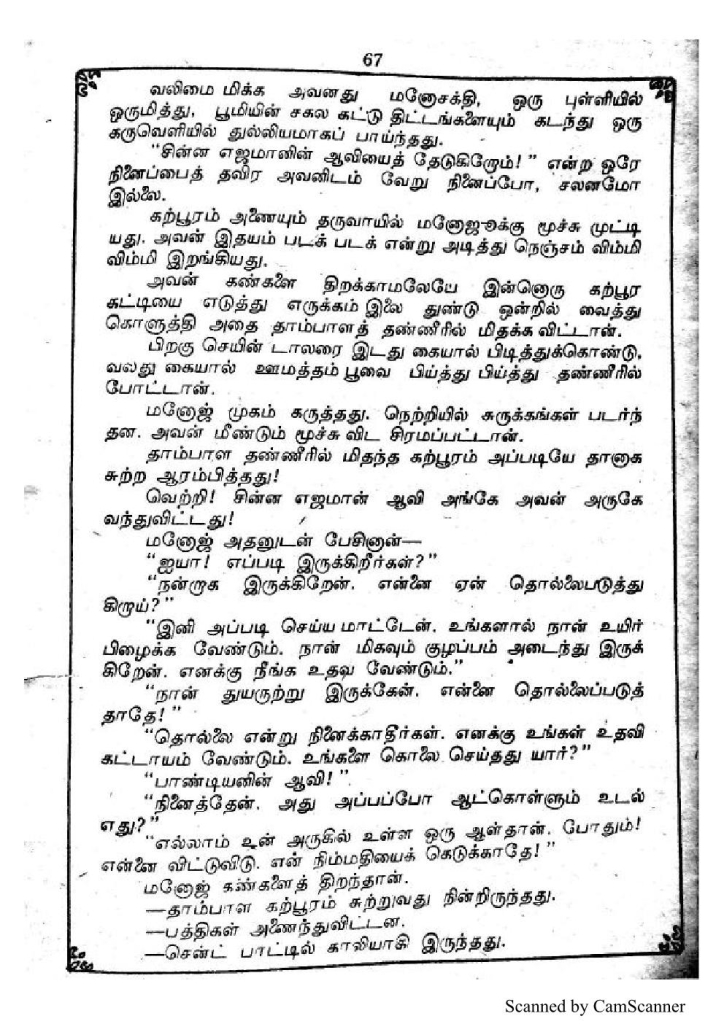 67
வலிமை மிக்க அவனது மனோசக்தி, ஒரு புள்ளியில்
ஒருமித்து, பூமியின் சகல கட்டு திட்டங்களையும் கடந்து ஒரு
கருவெளியில் துல்லியமாகப் பாய்ந்தது.
“சின்ன எஜமானின் ஆவியைத் தேடுகிறேம்!” என்ற ஒரே
நினைப்பைத் தவிர அவனிடம் வேறு நினைப்போ, சலனமோ
இல்லை.
கற்பூரம் அணையும் தருவாயில் மனோஜூக்கு மூச்சு முட்டி
யது. அவன் இதயம் படக் படக் என்று அடித்து நெஞ்சம் விம்மி
விம்மி இறங்கியது.
அவன் கண்களை திறக்காமலேயே இன்னொரு கற்பூர
கட்டியை எடுத்து எருக்கம் இலை துண்டு ஒன்றில் வைத்து
கொளுத்தி அதை தாம்பாளத் தண்ணீரில் மிதக்க விட்டான்.
பிறகு செயின் டாலரை இடது கையால் பிடித்துக்கொண்டு,
வலது கையால் ஊமத்தம் பூவை பிய்த்து பிய்த்து தண்ணீரில்
போட்டான்.
மனோஜ் முகம் கருத்தது. நெற்றியில் சுருக்கங்கள் படர்ந்
தன. அவன் மீண்டும் மூச்சு விட சிரமப்பட்டான்.
தாம்பாள தண்ணீரில் மிதந்த கற்பூரம் அப்படியே தானாக
சுற்ற ஆரம்பித்தது!
வெற்றி! சின்ன எஜமான் ஆவி அங்கே அவன் அருகே
வந்துவிட்டது!
மனோஜ் அதனுடன் பேசினான்—
“ஐயா! எப்படி இருக்கிறீர்கள்?”
“நன்றாக இருக்கிறேன். என்னை ஏன் தொல்லைபடுத்து
கிறாய்?”
“இனி அப்படி செய்ய மாட்டேன். உங்களால் நான் உயிர்
பிழைக்க வேண்டும். நான் மிகவும் குழப்பம் அடைந்து இருக்
கிறேன். எனக்கு நீங்க உதவ வேண்டும்.”
“நான் துயருற்று இருக்கேன். என்னை தொல்லைப்படுத்
தாதே!”
“தொல்லை என்று நினைக்காதீர்கள். எனக்கு உங்கள் உதவி
கட்டாயம் வேண்டும். உங்களை கொலை செய்தது யார்?”
“பாண்டியனின் ஆவி!”
“நினைத்தேன். அது அப்பப்போ ஆட்கொள்ளும் உடல்
எது?”
“எல்லாம் உன் அருகில் உள்ள ஒரு ஆள்தான். போதும்!
என்னை விட்டுவிடு. என் நிம்மதியைக் கெடுக்காதே!”
மனோஜ் கண்களைத் திறந்தான்.
—தாம்பாள கற்பூரம் சுற்றுவது நின்றிருந்தது.
—பத்திகள் அணைந்துவிட்டன.
—சென்ட் பாட்டில் காலியாகி இருந்தது.
Scanned by CamScanner